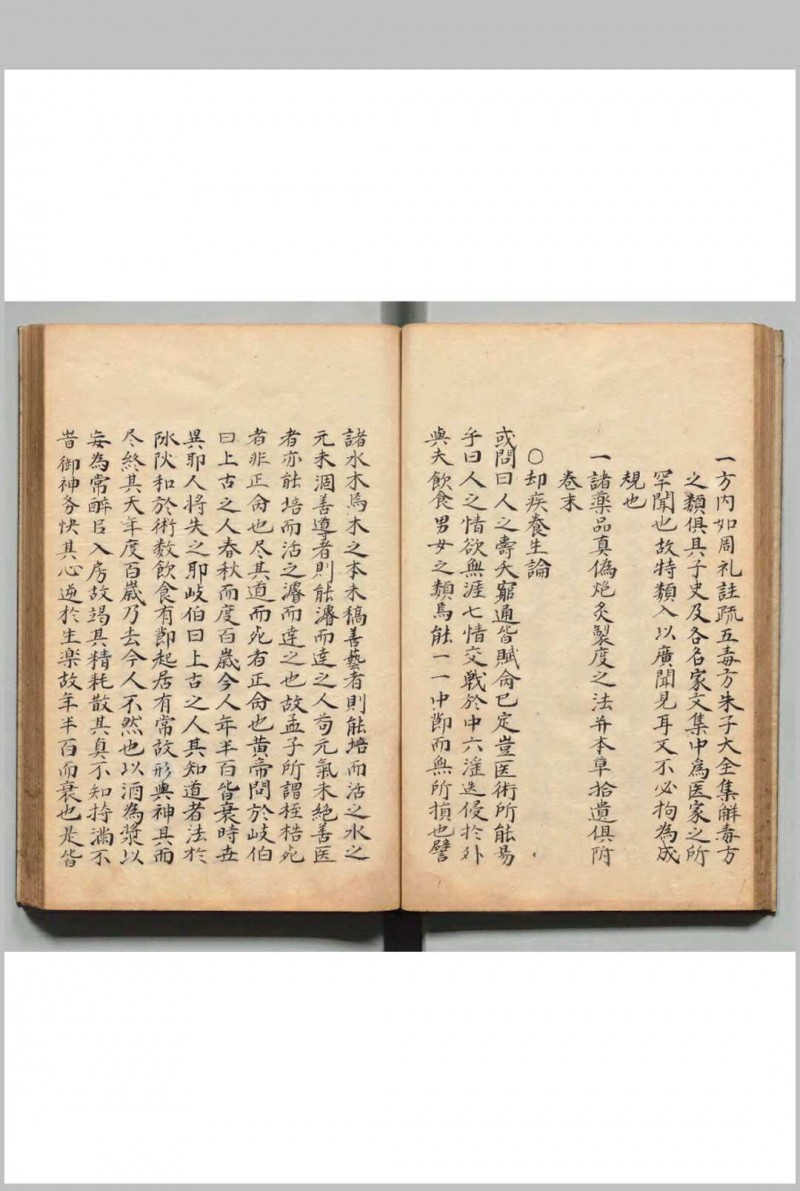 一方内如周礼註疏五毒方朱子大全集解毒方
之類俱具子史及各名家文集中為医家之所
罕聞也故特類入以廣聞見耳又不必拘為成
規也
一諸薬品真偽炮炙製度之法并本草拾遺俱附
卷末
○却疾養生論
或問曰人之壽夭窮通皆賦命已定豈医術所能易
乎曰人之情欲無涯七情交戰於中六滛迭侵於外
與夫飲食男女之類焉能一一中節而無所損也譬
諸水木焉木之本未稿善藝者則能培而活之水之
元未涸善導者則能濬而達之人苟元氣未絶善医
者亦能培而活之濬而達之也故孟子所謂桎梏死
者非正命也尽其道而死者正命也黄帝問於岐伯
曰上古之人春秋而度百歳今人年半百皆衰時世
異耶人将失之耶岐伯曰上古之人其知道者法於
阴阳和於術数飲食有節起居有常故形與神具而
尽終其天年度百歳乃去今人不然也以酒為漿以
妄為常醉以入房故竭其精耗散其真不知持満不
時御神务快其心逆於生楽故年半百而衰也是皆